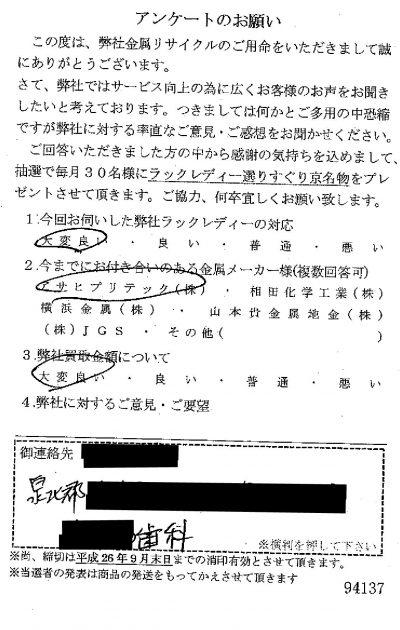 アンケートのお願い
この度は、弊社金属リサイクルのご用命をいただきまして誠
にありがとうございます。
さて、弊社ではサービス向上の為に広くお客様のお声をお聞き
したいと考えております。つきましては何かとご多用の中恐縮
ですが弊社に対する率直なご意見・ご感想をお聞かせください。
ご回答いただきました方の中から感謝の気持ちを込めまして、
抽選で毎月30名様にラックレディー選りすぐり京名物をプレ
ゼントさせて頂きます。ご協力、何卒宜しくお願い致します。
1.今回お伺いした弊社ラックレディーの対応
大変良い・良い・普通・悪い
2.今までにお付き合いのある金属メーカー様(複数回答可)
アサヒプリテック(株)・相田化学工業(株)
横浜金属(株)・山本貴金属地金(株)
(株)JGS・その他( )
3.弊社買取金額について
大変良い・良い・普通・悪い
4.弊社に対するご意見・ご要望
御連絡先
郡
歯科
※横判を押して下さい
※尚、締切は平成26年9月末日までの消印有効とさせて頂きます。
※当選者の発表は商品の発送をもってかえさせて頂きます
94137